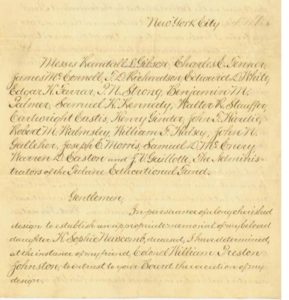 New York City
Messrs Randall L. Gibson, Charles E. Fenner,
James McConnell, T. D. Richardson, Edward D. White,
Edgar H. Farrar, P. N. Strong, Benjamin M.
Palmer, Samuel H. Kennedy, Walter R. Stauffer,
Cartwright Eustis, Henry Ginder, John T. Hardie,
Robert M. Walmsley, William F. Halsey, John N.
Galleher, Joseph C. Morris, Samuel D. McEnery
Warren D. Easton and J. V. Guillotte, The Adminis-
trators of the Tulane Educational Fund.
Gentlemen,
In pursuance of a long cherished
design to establish an appropriate memorial of my beloved
daughter H. Sophie Newcomb, deceased, I have determined,
at the instance of my friend, Colonel William Preston
Johnston, to entrust to your Board the execution of my
design.